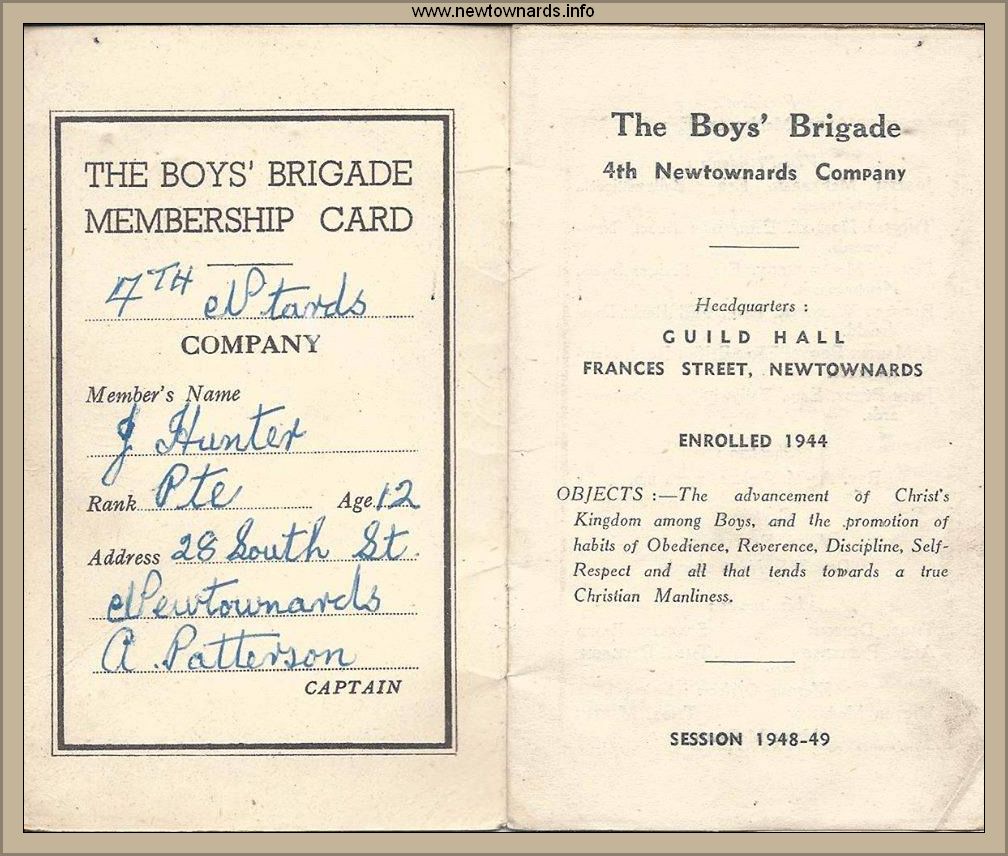 www.newtownards.info
THE BOYS' BRIGADE
MEMBERSHIP CARD
4TH Ntards
COMPANY
Member's Name
J Hunter
Rank Pte Age 12
Address 28 South St.
Newtownards
A. Patterson
CAPTAIN
The Boys' Brigade
4th Newtownards Company
Headquarters :
GUILD HALL
FRANCES STREET, NEWTOWNARDS
ENROLLED 1944
OBJECTS :—The advancement of Christ's
Kingdom among Boys, and the promotion of
habits of Obedience, Reverence, Discipline, Self-
Respect and all that tends towards a true
Christian Manliness.
SESSION 1948-49